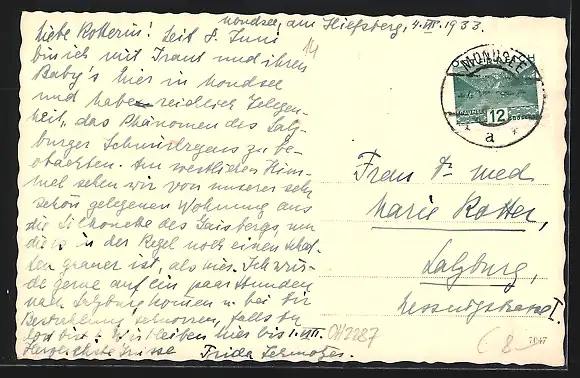 Mondsee, am Hiefsberg, 4. VII. 1933.
Liebe Kotterin! Seit 8. Juni
bin ich mit Traut und ihren
Baby's hier in Mondsee
und habe reichlich Gelegen-
heit, das Phänomen des Salz-
burger Schnürlregens zu be-
obachten. Am westlichen Him-
mel sehen wir von unserer sehr
schön gelegenen Wohnung aus
die Silhouette des Gaisbergs, um
die es in der Regel noch einen Schat-
ten grauer ist, als hier. Ich wür-
de gerne auf ein paar Stunden
nach Salzburg kommen u. bei Dir
falls Du
dort bist. Wir bleiben hier bis 1. VIII.
Herzlichste Grüsse Frida
14
MONDSEE
12
a
Frau Dr. med
Marie Kotter,
Salzburg,
I.
OH2287
7047
8-